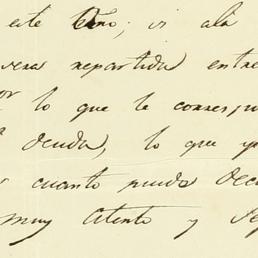 este Año; si alá
vera repartida entre
or lo que le corresp
deuda, lo que y
cuanto pueda dec
muy atento y se